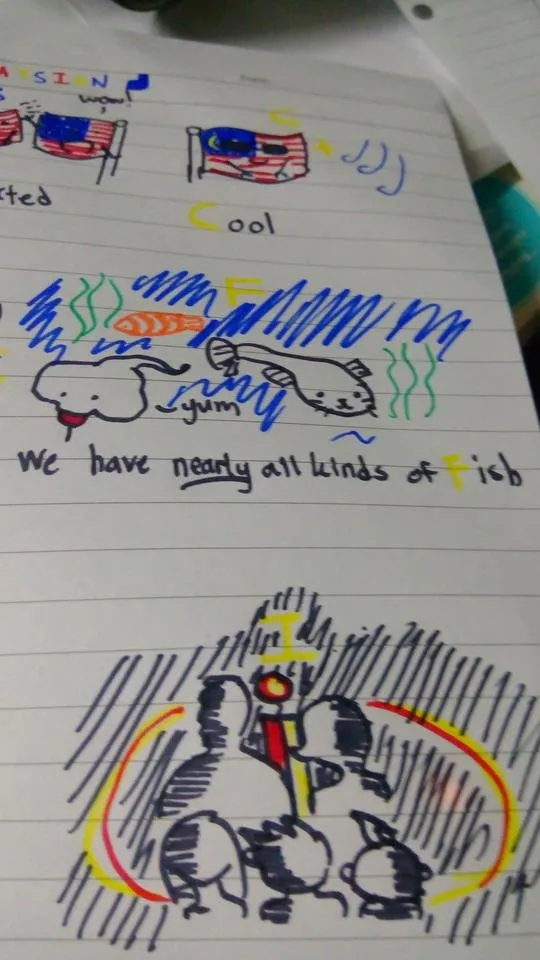 A S I A N
wow!
C
Cool
F
yum
We have nearly all kinds of Fish
I